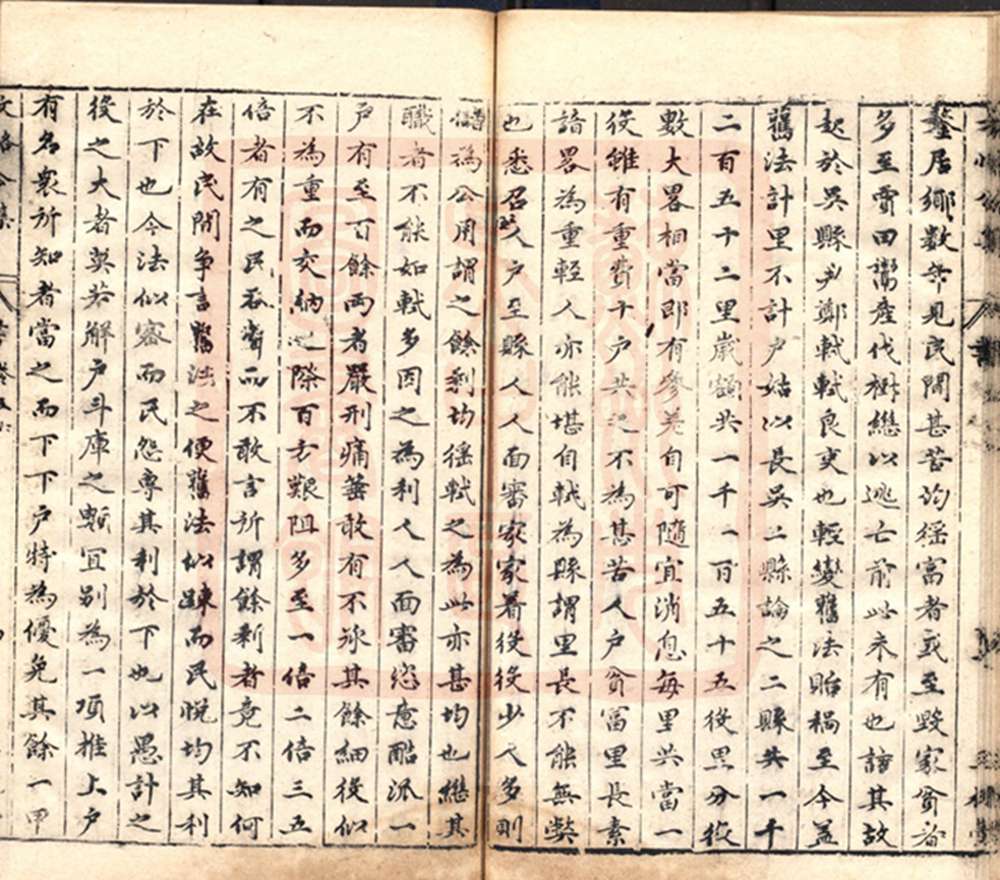 鏊居鄉數年見民間甚苦均徭富者或至毀家貧者
多至賣田鬻產伐樹繼以逃亡前此未有也詰其故
起於吳縣尹鄭軾軾良吏也輕變舊法貽禍至今蓋
舊法計里不計戶姑以長吳二縣論之二縣共一千
二百五十二里歲額共一千一百五十五役里分役
數大畧相當即有參差自可隨宜消息每里共當一
役雖有重費十戶共之不為甚苦人戶貧富里長素
諳畧為重輕人亦能堪自軾為縣謂里長不能無獘
也悉召人戶至縣人人面審家家着役役少人多則
儲為公用謂之餘剩均徭軾之為此亦甚均也繼其
職者不能如軾多因之為利人人面審恣意酷派一
戶有至百餘兩者嚴刑痛箠敢有不承其餘細役似
不為重而交納之際百方艱阻多至一倍二倍三五
倍者有之民吞聲而不敢言所謂餘剩者竟不知何
在故民間爭言舊法之便舊法似踈而民悅均其利
於下也今法似密而民怨專其利於下也以愚計之
役之大者莫若解戶斗庫之類宜別為一項推上戶
有名衆所知者當之而下下戶特為優免其餘一甲